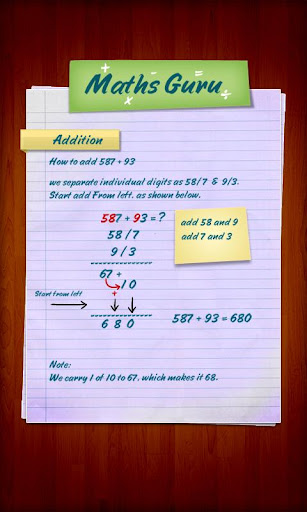 Maths Guru
Addition
How to add 587 + 93
we separate individual digits as 58/7 & 9/3.
Start add From left. as shown below.
587 + 93 = ?
58 / 7
9 / 3
67 +
10
+
Start from left
6 8 0
add 58 and 9
add 7 and 3
587 + 93 = 680
Note:
We carry 1 of 10 to 67. which makes it 68.